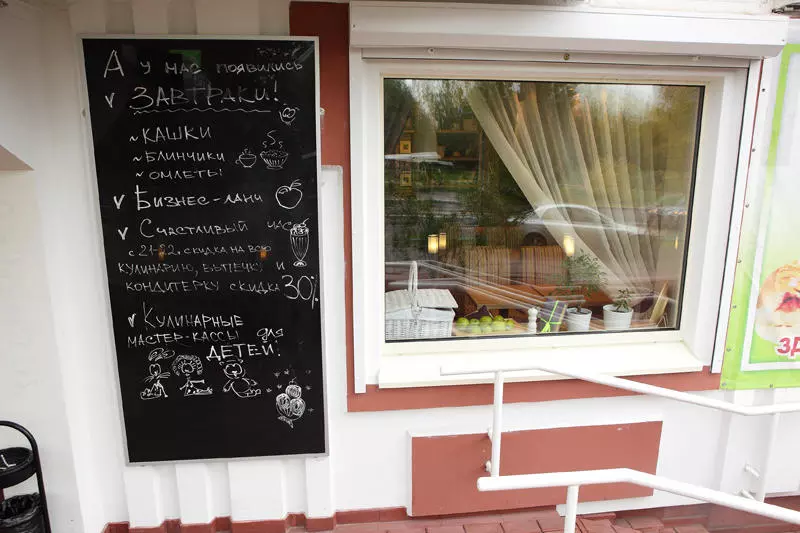 А у нас появились
✓ ЗАВТРАКИ!
~ КАШКИ
~ БЛИНЧИКИ
~ ОМЛЕТЫ
✓ Бизнес-ланч
✓ Счастливый час
с 21-22. скидка на всю
кулинарию, выпечку и
кондитерку скидка 30%
✓ Кулинарные
мастер-кассы для
ДЕТЕЙ!
ЗД